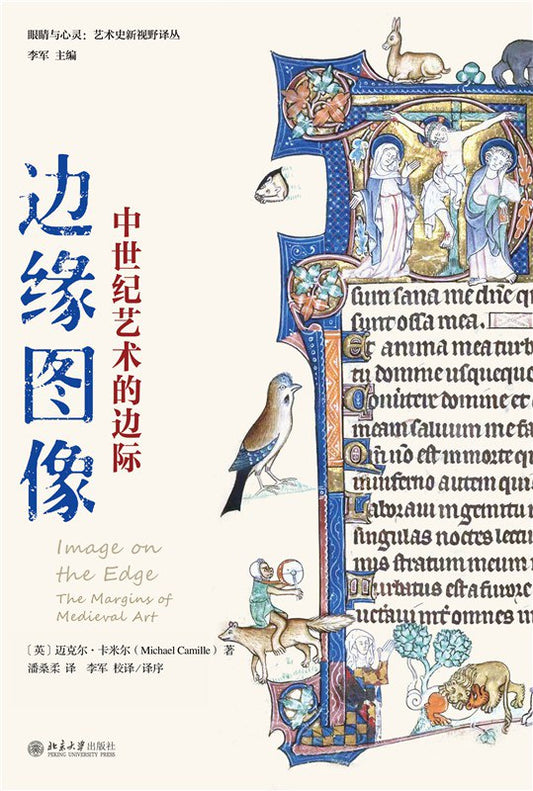 眼睛与心灵：艺术史新视野译丛
李军 主编
边缘图像
中世纪艺术的边际
Image on
the Edge
The Margins of
Medieval Art
［英］迈克尔·卡米尔（Michael Camille）著
潘桑柔 译 李军 校译/译序
北京大学出版社
PEKING UNIVERSITY PRESS
sum sana me dñe q
sunt ossa mea.
Et anima mea turb
tu domine usquequo
Conuertere domine et
meam saluum me fa
Qm̄ nō est in morte q
in inferno autem qui
Laboraui in gemitu
singulas noctes lectu
mis stratum meum
Turbatus est a furore